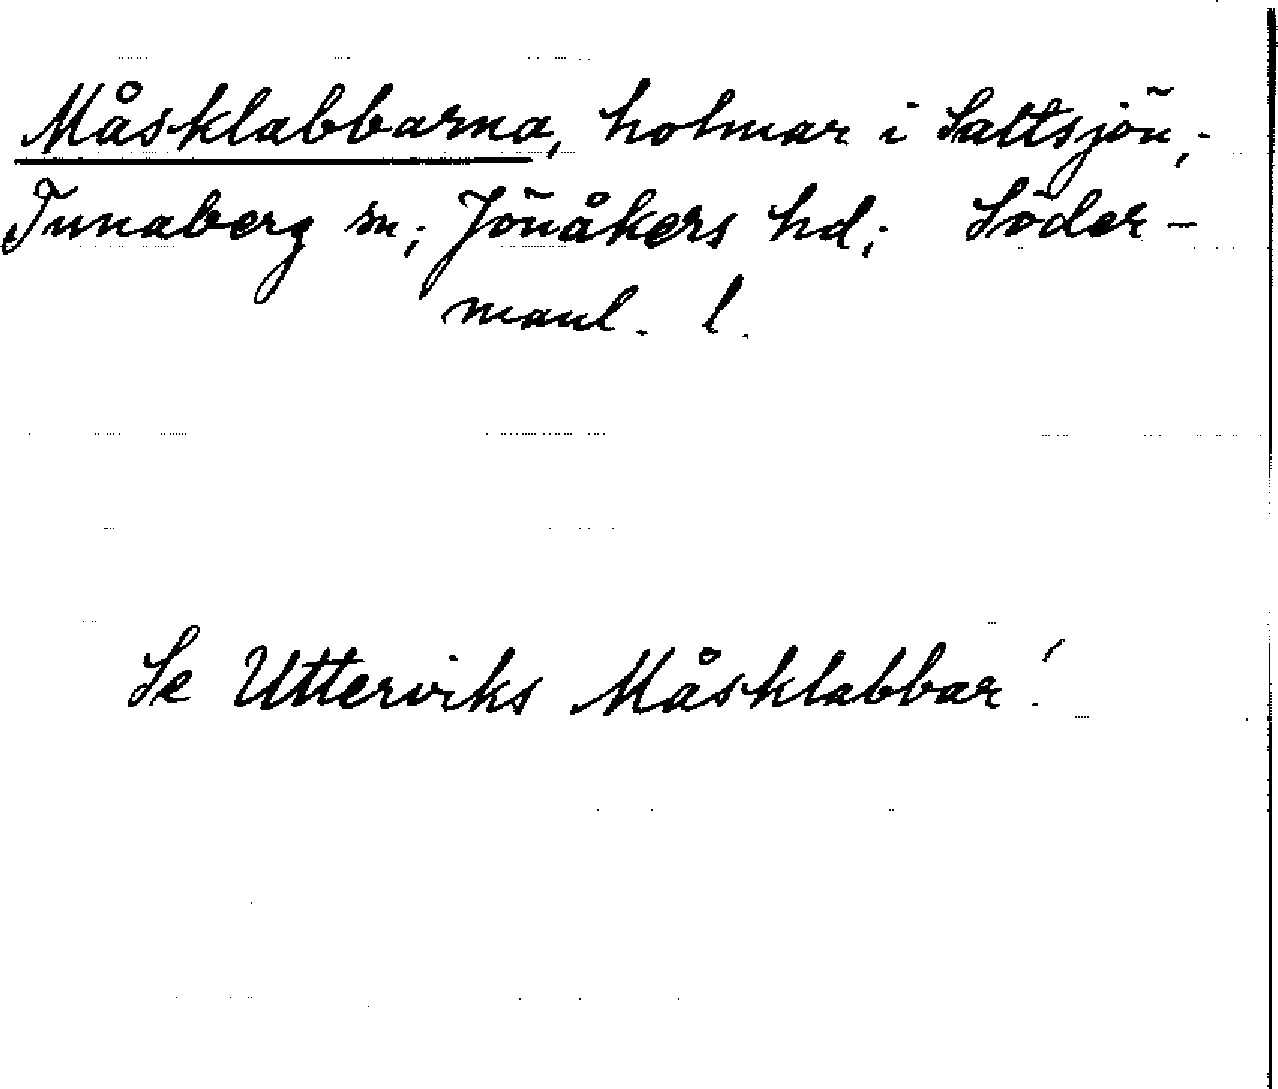 Måsklabbarna, holmar i Saltsjön,-
Tunaberg sn; Jönåkers hd; Söder-
manl. l.
Se Utterviks Måsklabbar!